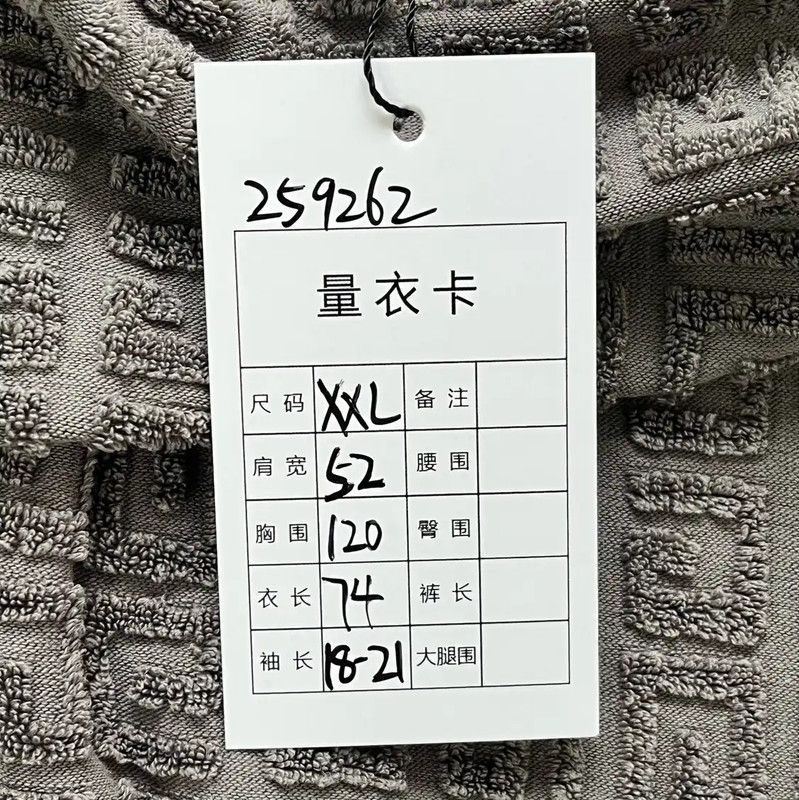 259262
量衣卡
尺码 XXL 备注
肩宽 52 腰围
胸围 120 臀围
衣长 74 裤长
袖长 18-21 大腿围